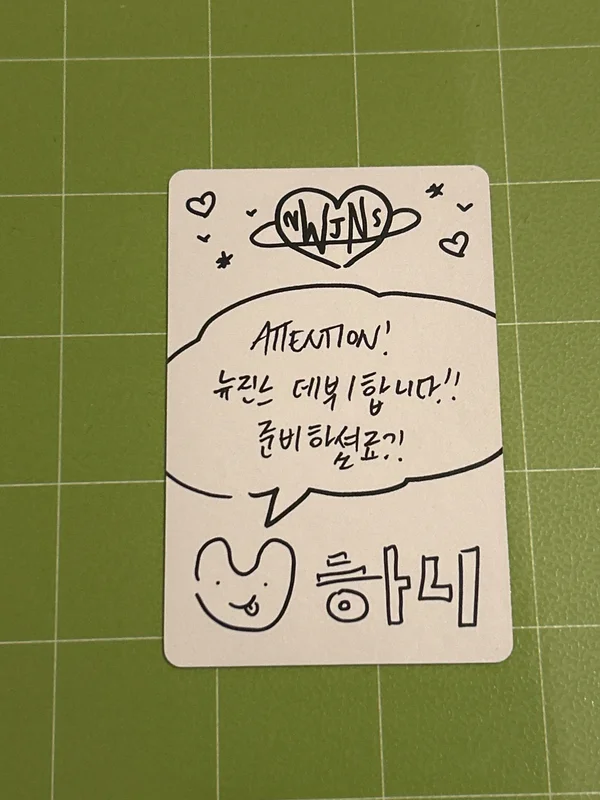 NWJNS
ATTENTION!
뉴진스 데뷔합니다!!
준비하실료?!
하니